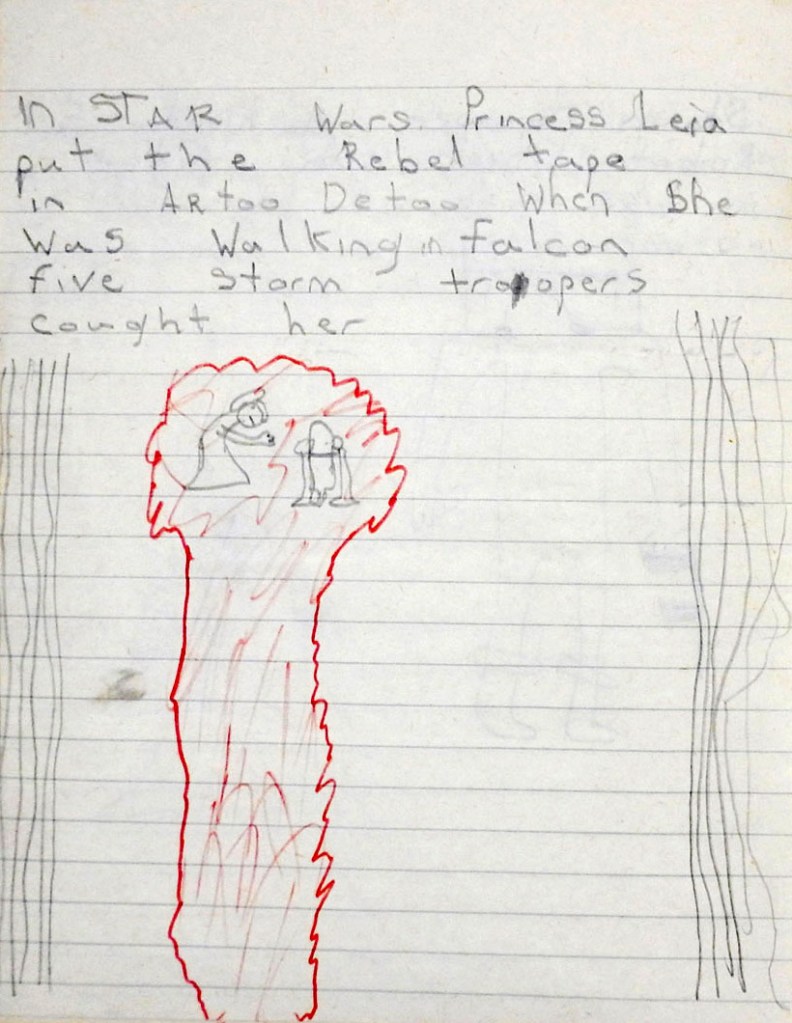 In STAR Wars. Princess Leia
put the Rebel tape
in ARtoo Detoo When She
was Walking in falcon
five storm troopers
cought her